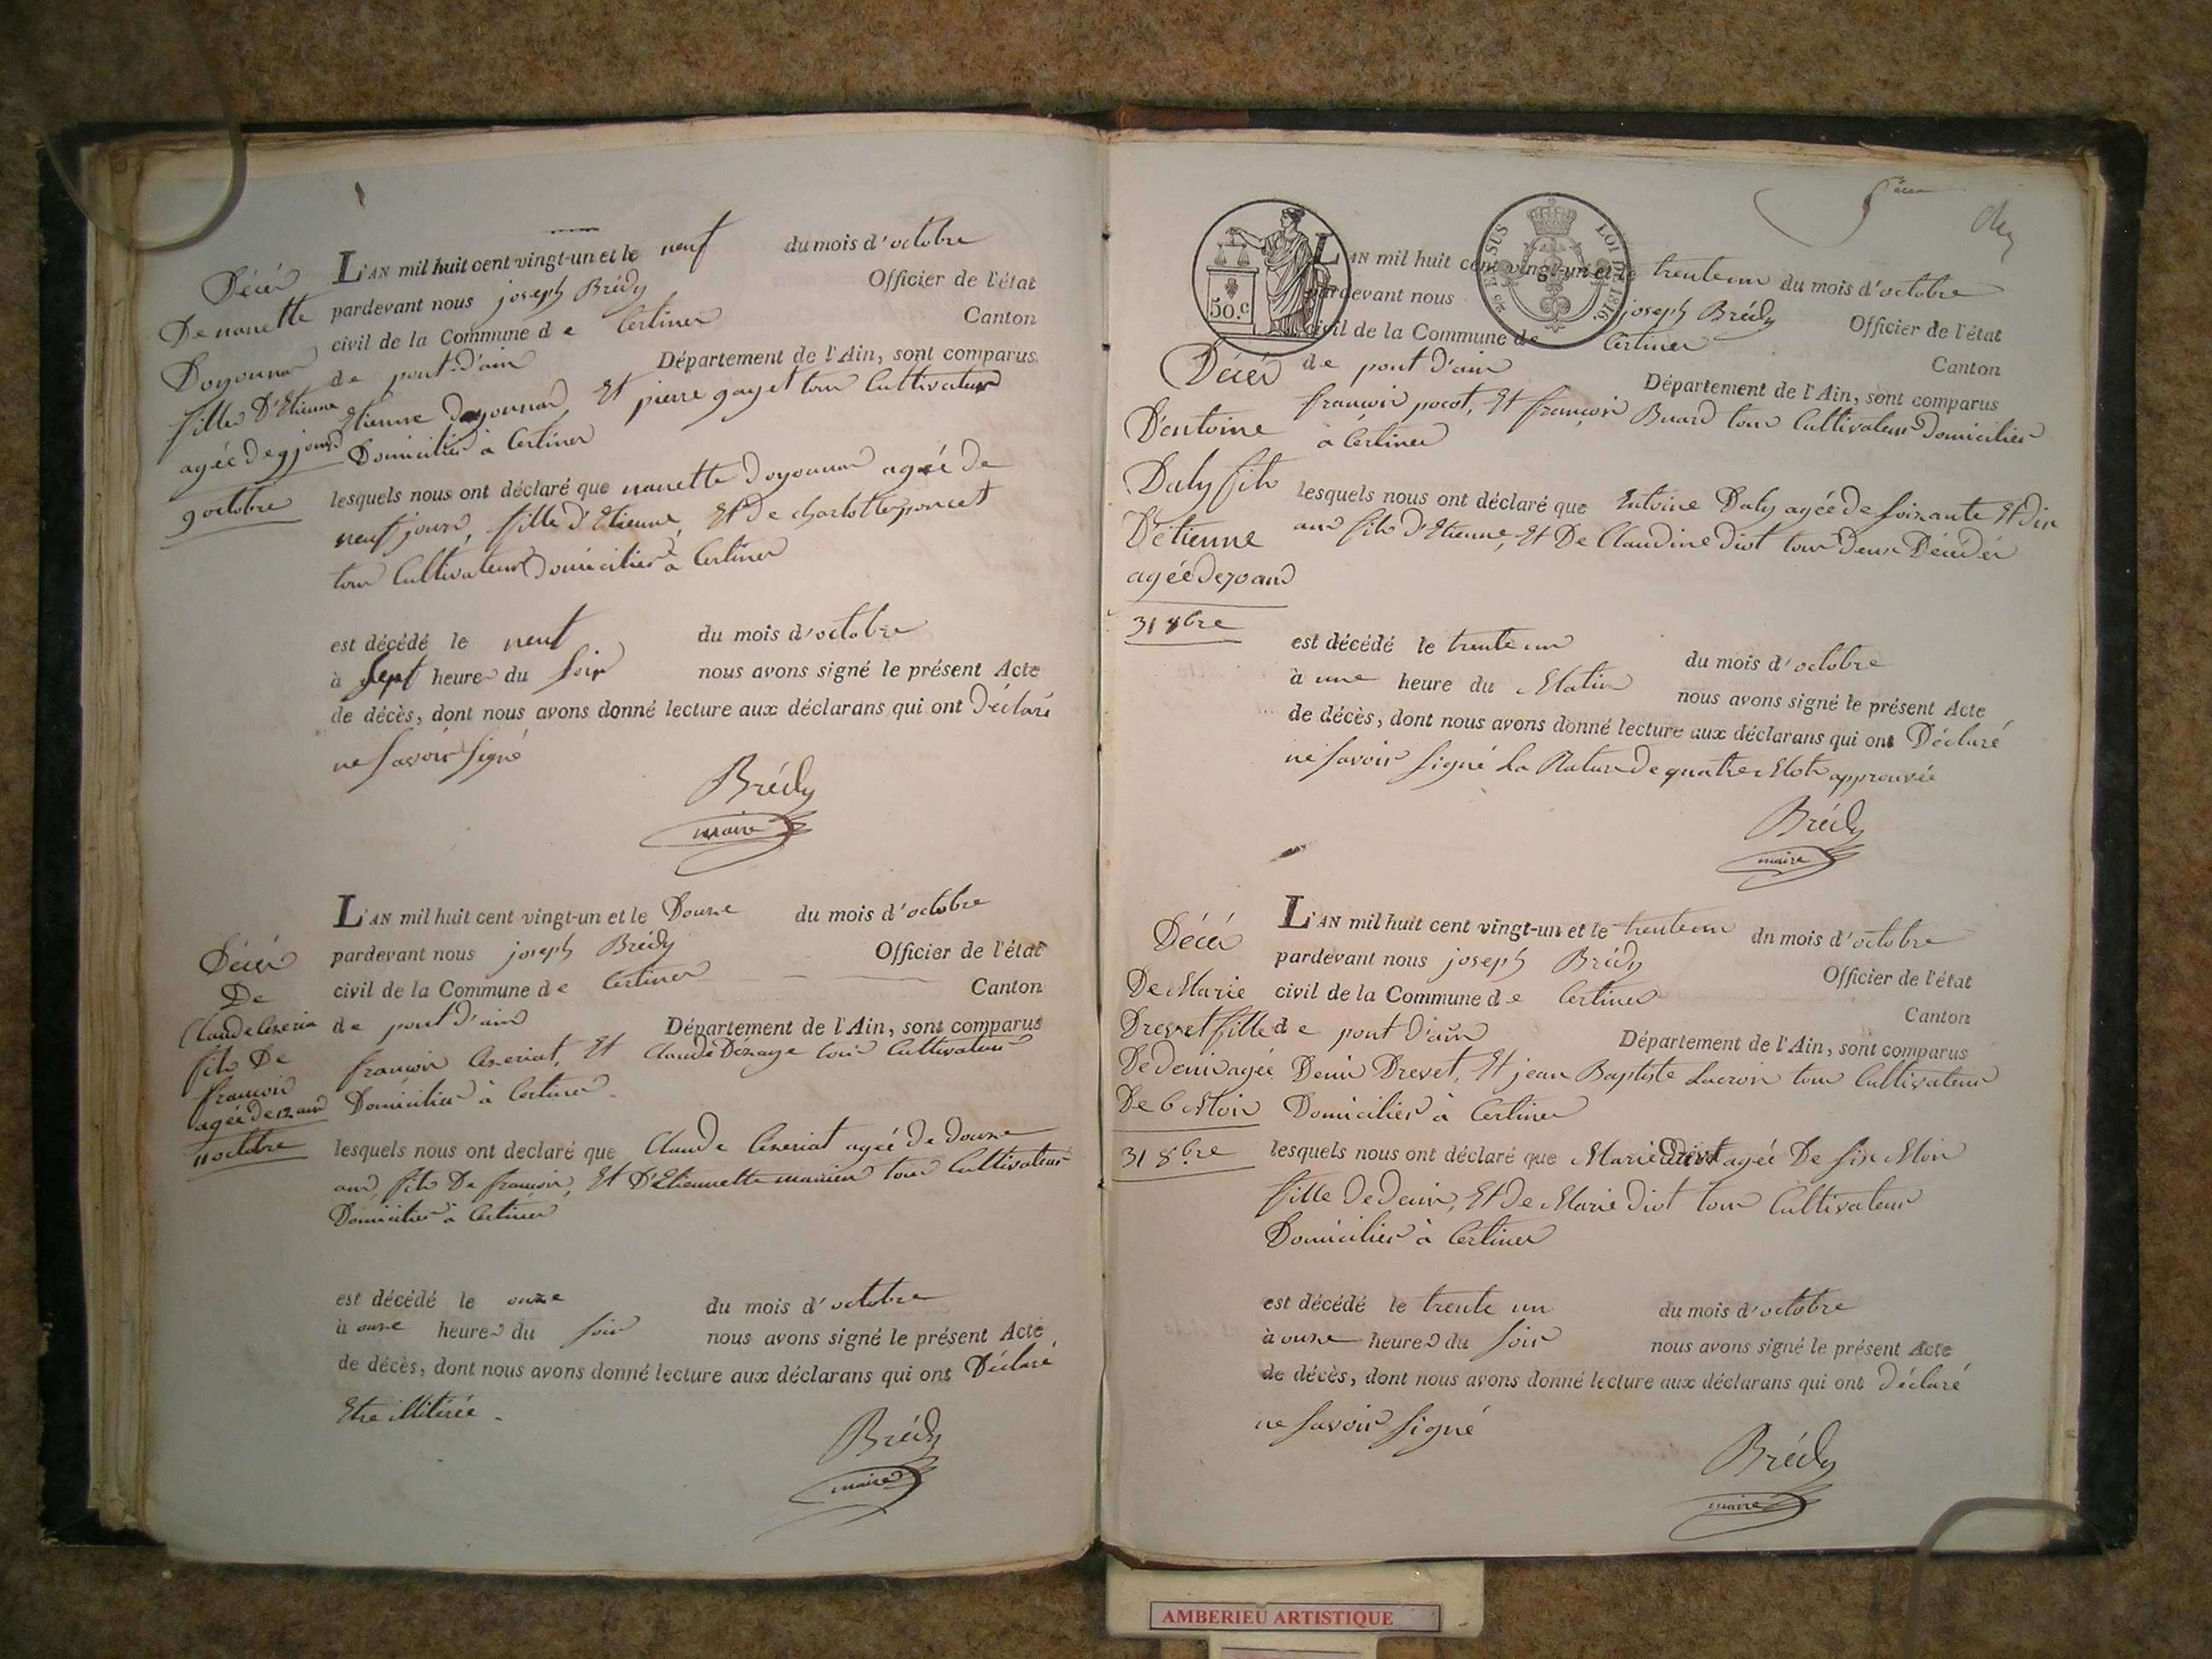 Décès
De nanette
Doyonnas
fille D'Etienne
agée de 9 jours
9 octobre
L'AN mil huit cent vingt-un et le neuf du mois d'octobre
pardevant nous joseph Brédy Officier de l'état
civil de la Commune de Certines Canton
de pont-d'ain Département de l'Ain, sont comparus
Etienne doyonnas, Et pierre gayet tous Cultivateurs
Domiciliés à Certines
lesquels nous ont déclaré que nanette doyonnas agée de
neuf jours, fille d'Etienne, Et de charlotte poncet
tous Cultivateurs Domiciliés à Certines
est décédé le neuf du mois d'octobre
à Sept heures du soir nous avons signé le présent Acte
de décès, dont nous avons donné lecture aux déclarans qui ont Déclaré
ne savoir signé
Brédy
maire
Décès
De
Claude Ceseria
fils De
francois
agée de 12 ans
11 octobre
L'AN mil huit cent vingt-un et le Douze du mois d'octobre
pardevant nous joseph Brédy Officier de l'état
civil de la Commune de Certines Canton
de pont d'ain Département de l'Ain, sont comparus
francois Ceseriat, Et Claude Dézaye tous Cultivateurs
Domiciliés à Certines
lesquels nous ont declaré que Claude Ceseriat agée de douze
ans, fils De francois, Et D'Etiennette tous Cultivateurs
Domiciliés à Certines
est décédé le onze du mois d'octobre
à onze heures du soir nous avons signé le présent Acte
de décès, dont nous avons donné lecture aux déclarans qui ont Déclaré
Etre illitérée
Brédy
maire
5eme
50.c
LOI DE 1816.
Décès
D'entoine
Daly fils
D'étienne
agée de 70 ans
31 8bre
L'AN mil huit cent vingt-un et le trente un du mois d'octobre
pardevant nous joseph Brédy Officier de l'état
civil de la Commune de Certines Canton
de pont d'ain Département de l'Ain, sont comparus
francois pocot, Et françois Buard tous Cultivateurs Domiciliés
à Certines
lesquels nous ont déclaré que Entoine Daly agée de soixante Et dix
ans fils d'Etienne, Et De Claudine diot tous deux Décédés
est décédé le trente un du mois d'octobre
à une heure du Matin nous avons signé le présent Acte
de décès, dont nous avons donné lecture aux déclarans qui ont Déclaré
ne savoir signé La Rature de quatres Mots approuvée
Brédy
maire
Décès
De Marie
Drevet fille
De denis agée
De 6 Mois
31 8bre
L'AN mil huit cent vingt-un et le trente un dn mois d'octobre
pardevant nous joseph Brédy Officier de l'état
civil de la Commune de Certines Canton
de pont d'ain Département de l'Ain, sont comparus
Denis Drevet, Et jean Baptiste Lacroix tous Cultivateurs
Domiciliés à Certines
lesquels nous ont déclaré que Marie Drevet agée De six Mois
fille De denis, Et de Marie diot tous Cultivateurs
Domiciliés à Certines
est décédé le trente un du mois d'octobre
à onze heures du soir nous avons signé le présent Acte
de décès, dont nous avons donné lecture aux déclarans qui ont déclaré
ne savoir signé
Brédy
maire
AMBERIEU ARTISTIQUE